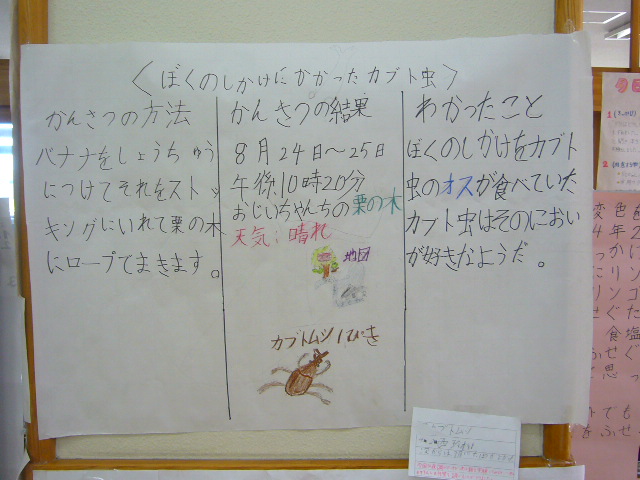 〈ぼくのしかけにかかったカブト虫〉
かんさつの方法
バナナをしょうちゅう
につけてそれをストッ
キングにいれて栗の木
にロープでまきます。
かんさつの結果
8月24日〜25日
午後10時20分
おじいちゃんちの栗の木
天気:晴れ
地図
カブトムシ1ぴき
わかったこと
ぼくのしかけをカブト
虫のオスが食べていた
カブト虫はそのにおい
が好きなようだ。
カブトムシ
変色を
4年2
っかに
にリン
リンゴ
せぐた
食塩
ふせぐ
と思っ
でも
をふせ